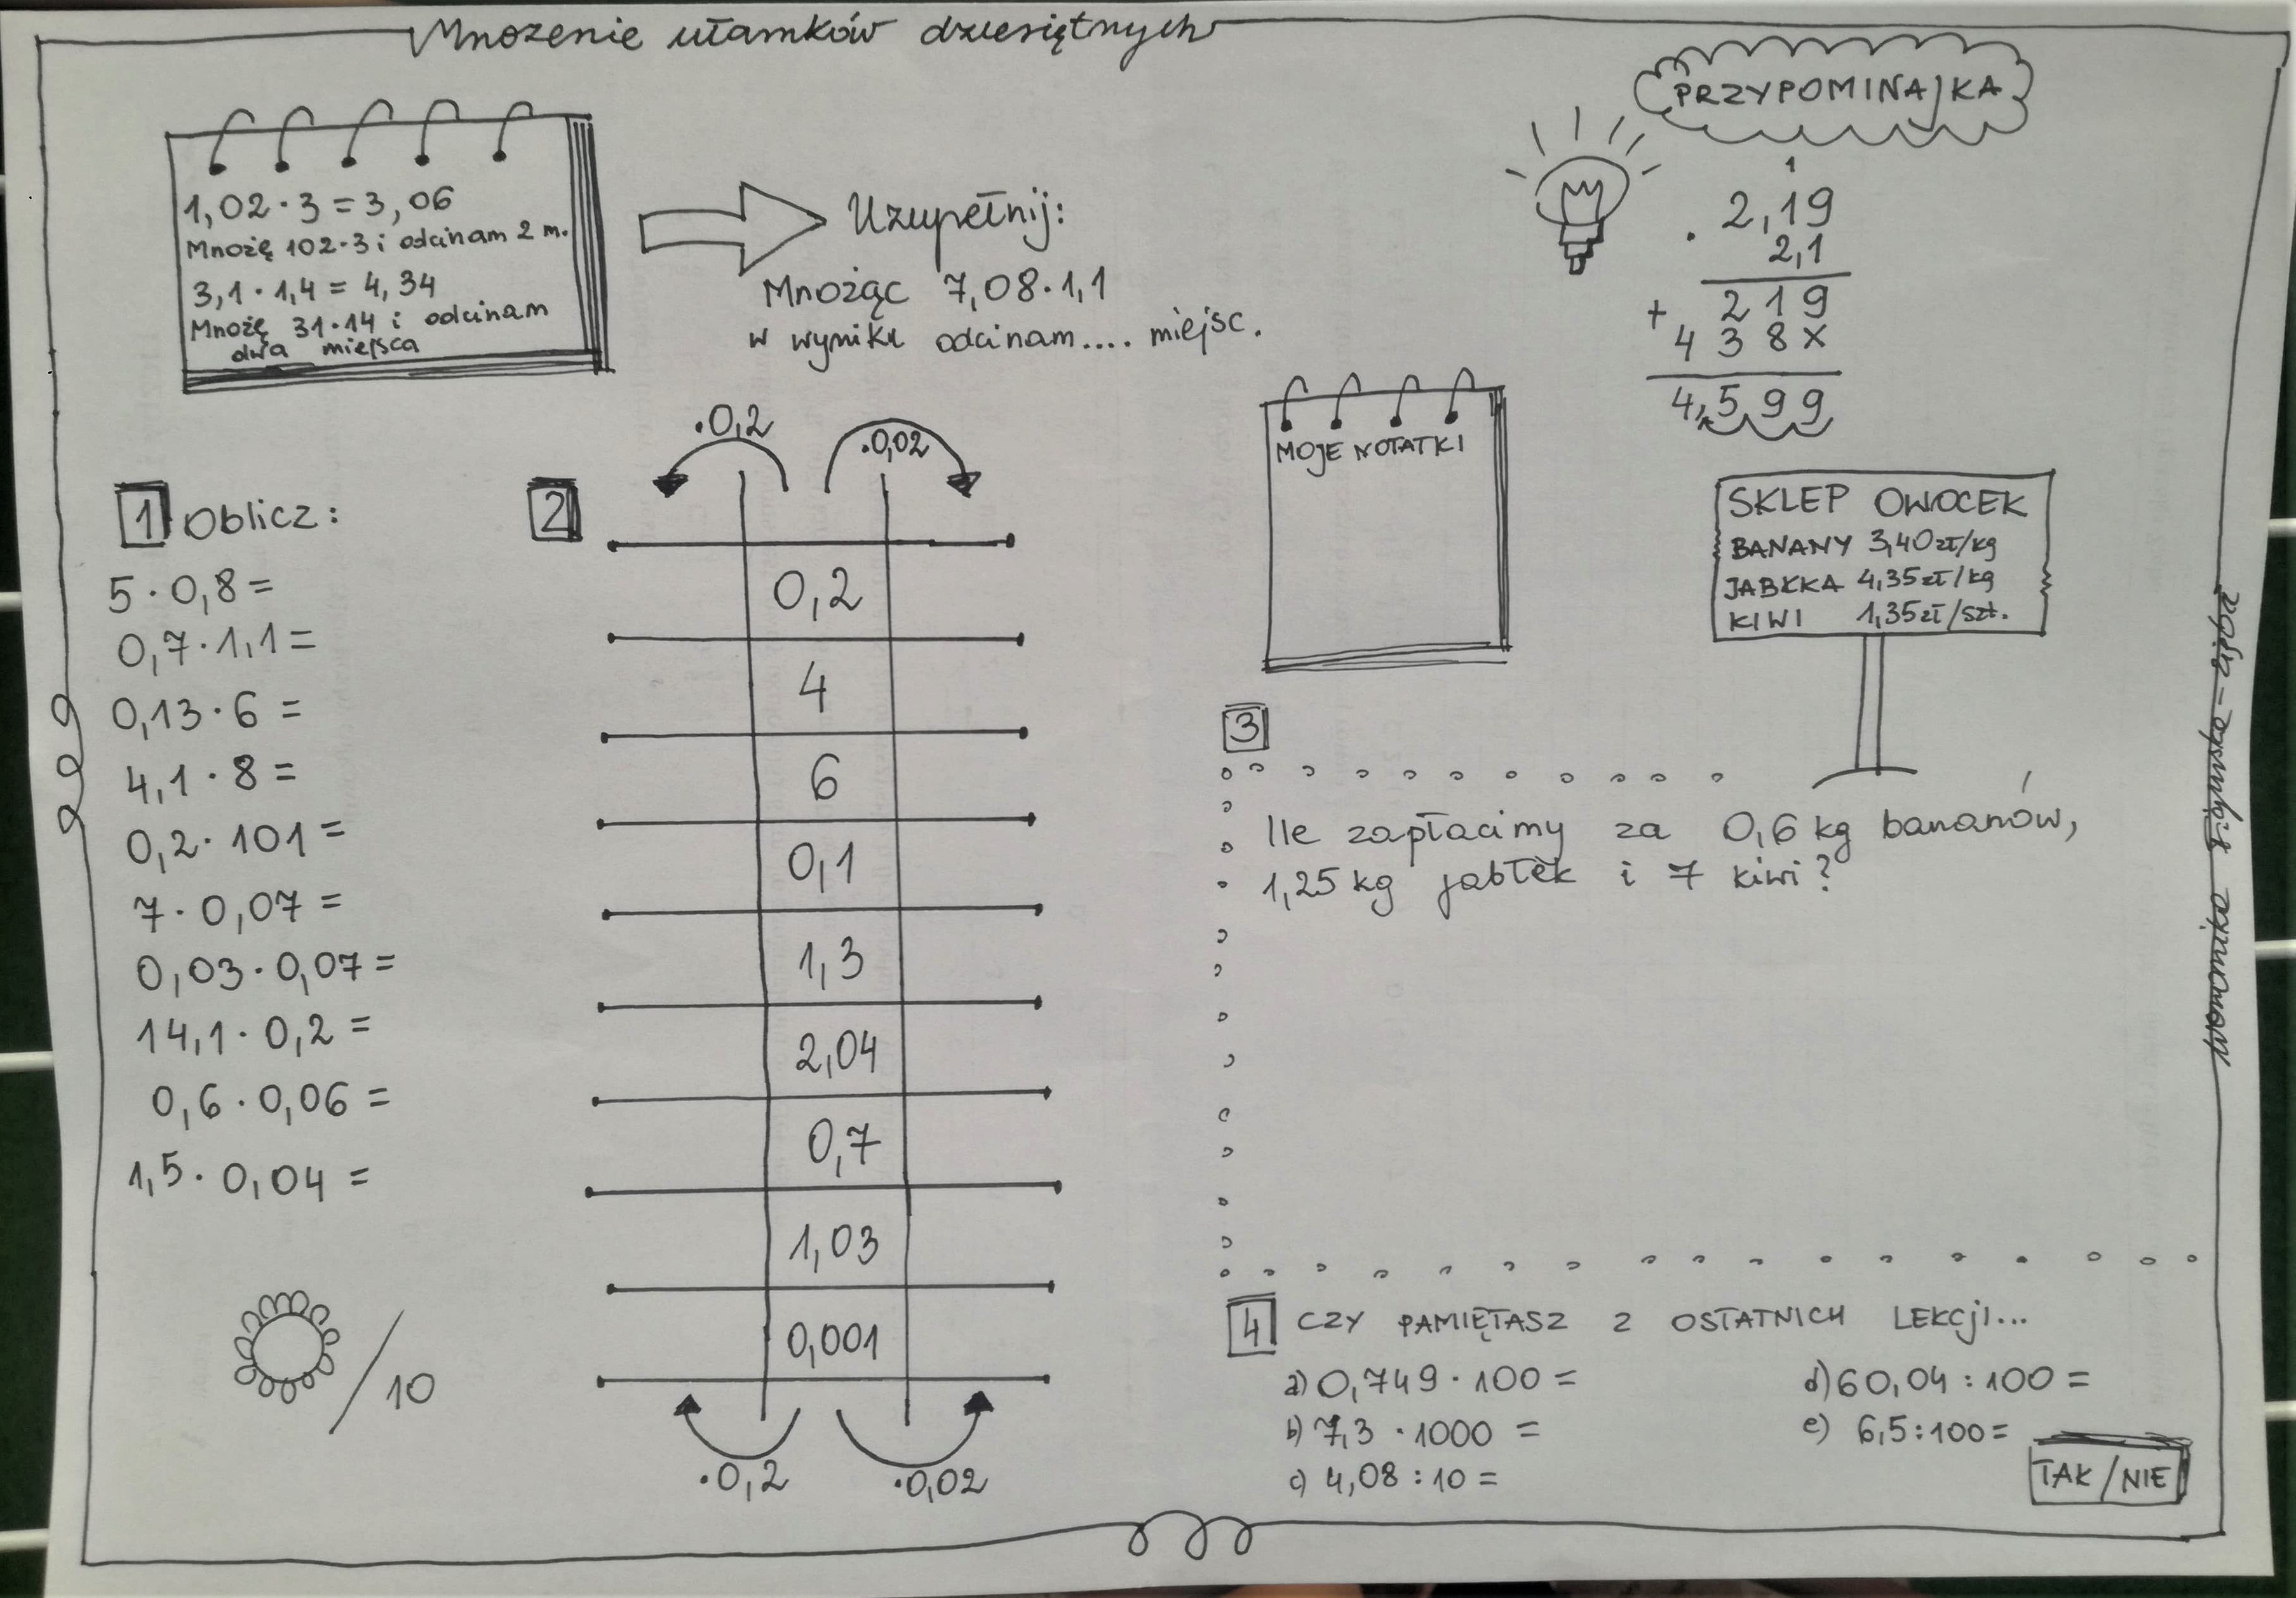 Mnożenie ułamków dziesiętnych
1,02 · 3 = 3,06
Mnożę 102·3 i odcinam 2 m.
3,1 · 1,4 = 4,34
Mnożę 31·14 i odcinam
dwa miejsca
Uzupełnij:
Mnożąc 7,08·1,1
w wyniku odcinam.... miejsc.
PRZYPOMINAJKA
1
2,19
· 2,1
219
+ 438x
4,599
1 Oblicz:
5 · 0,8 =
0,7 · 1,1 =
0,13 · 6 =
4,1 · 8 =
0,2 · 101 =
7 · 0,07 =
0,03 · 0,07 =
14,1 · 0,2 =
0,6 · 0,06 =
1,5 · 0,04 =
/10
2
·0,2 ·0,02
0,2
4
6
0,1
1,3
2,04
0,7
1,03
0,001
·0,2 ·0,02
MOJE NOTATKI
SKLEP OWOCEK
BANANY 3,40zł/kg
JABŁKA 4,35zł/kg
KIWI 1,35zł/szt.
3
Ile zapłacimy za 0,6 kg bananów,
1,25 kg jabłek i 7 kiwi?
4 CZY PAMIĘTASZ Z OSTATNICH LEKCJI...
a) 0,749 · 100 =
b) 7,3 · 1000 =
c) 4,08 : 10 =
d) 60,04 : 100 =
e) 6,5 : 100 =
TAK / NIE